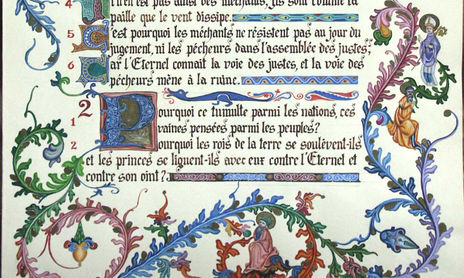 4 Il n'en est pas ainsi des méchants, ils sont comme la
paille que le vent dissipe.
5 C'est pourquoi les méchants ne résistent pas au jour du
jugement, ni les pécheurs dans l'assemblée des justes;
6 Car l'Eternel connaît la voie des justes, et la voie des
pécheurs mène à la ruine.
2
1 Pourquoi ce tumulte parmi les nations, ces
vaines pensées parmi les peuples?
2 Pourquoi les rois de la terre se soulèvent-ils
et les princes se liguent-ils avec eux contre l'Eternel et
contre son oint?